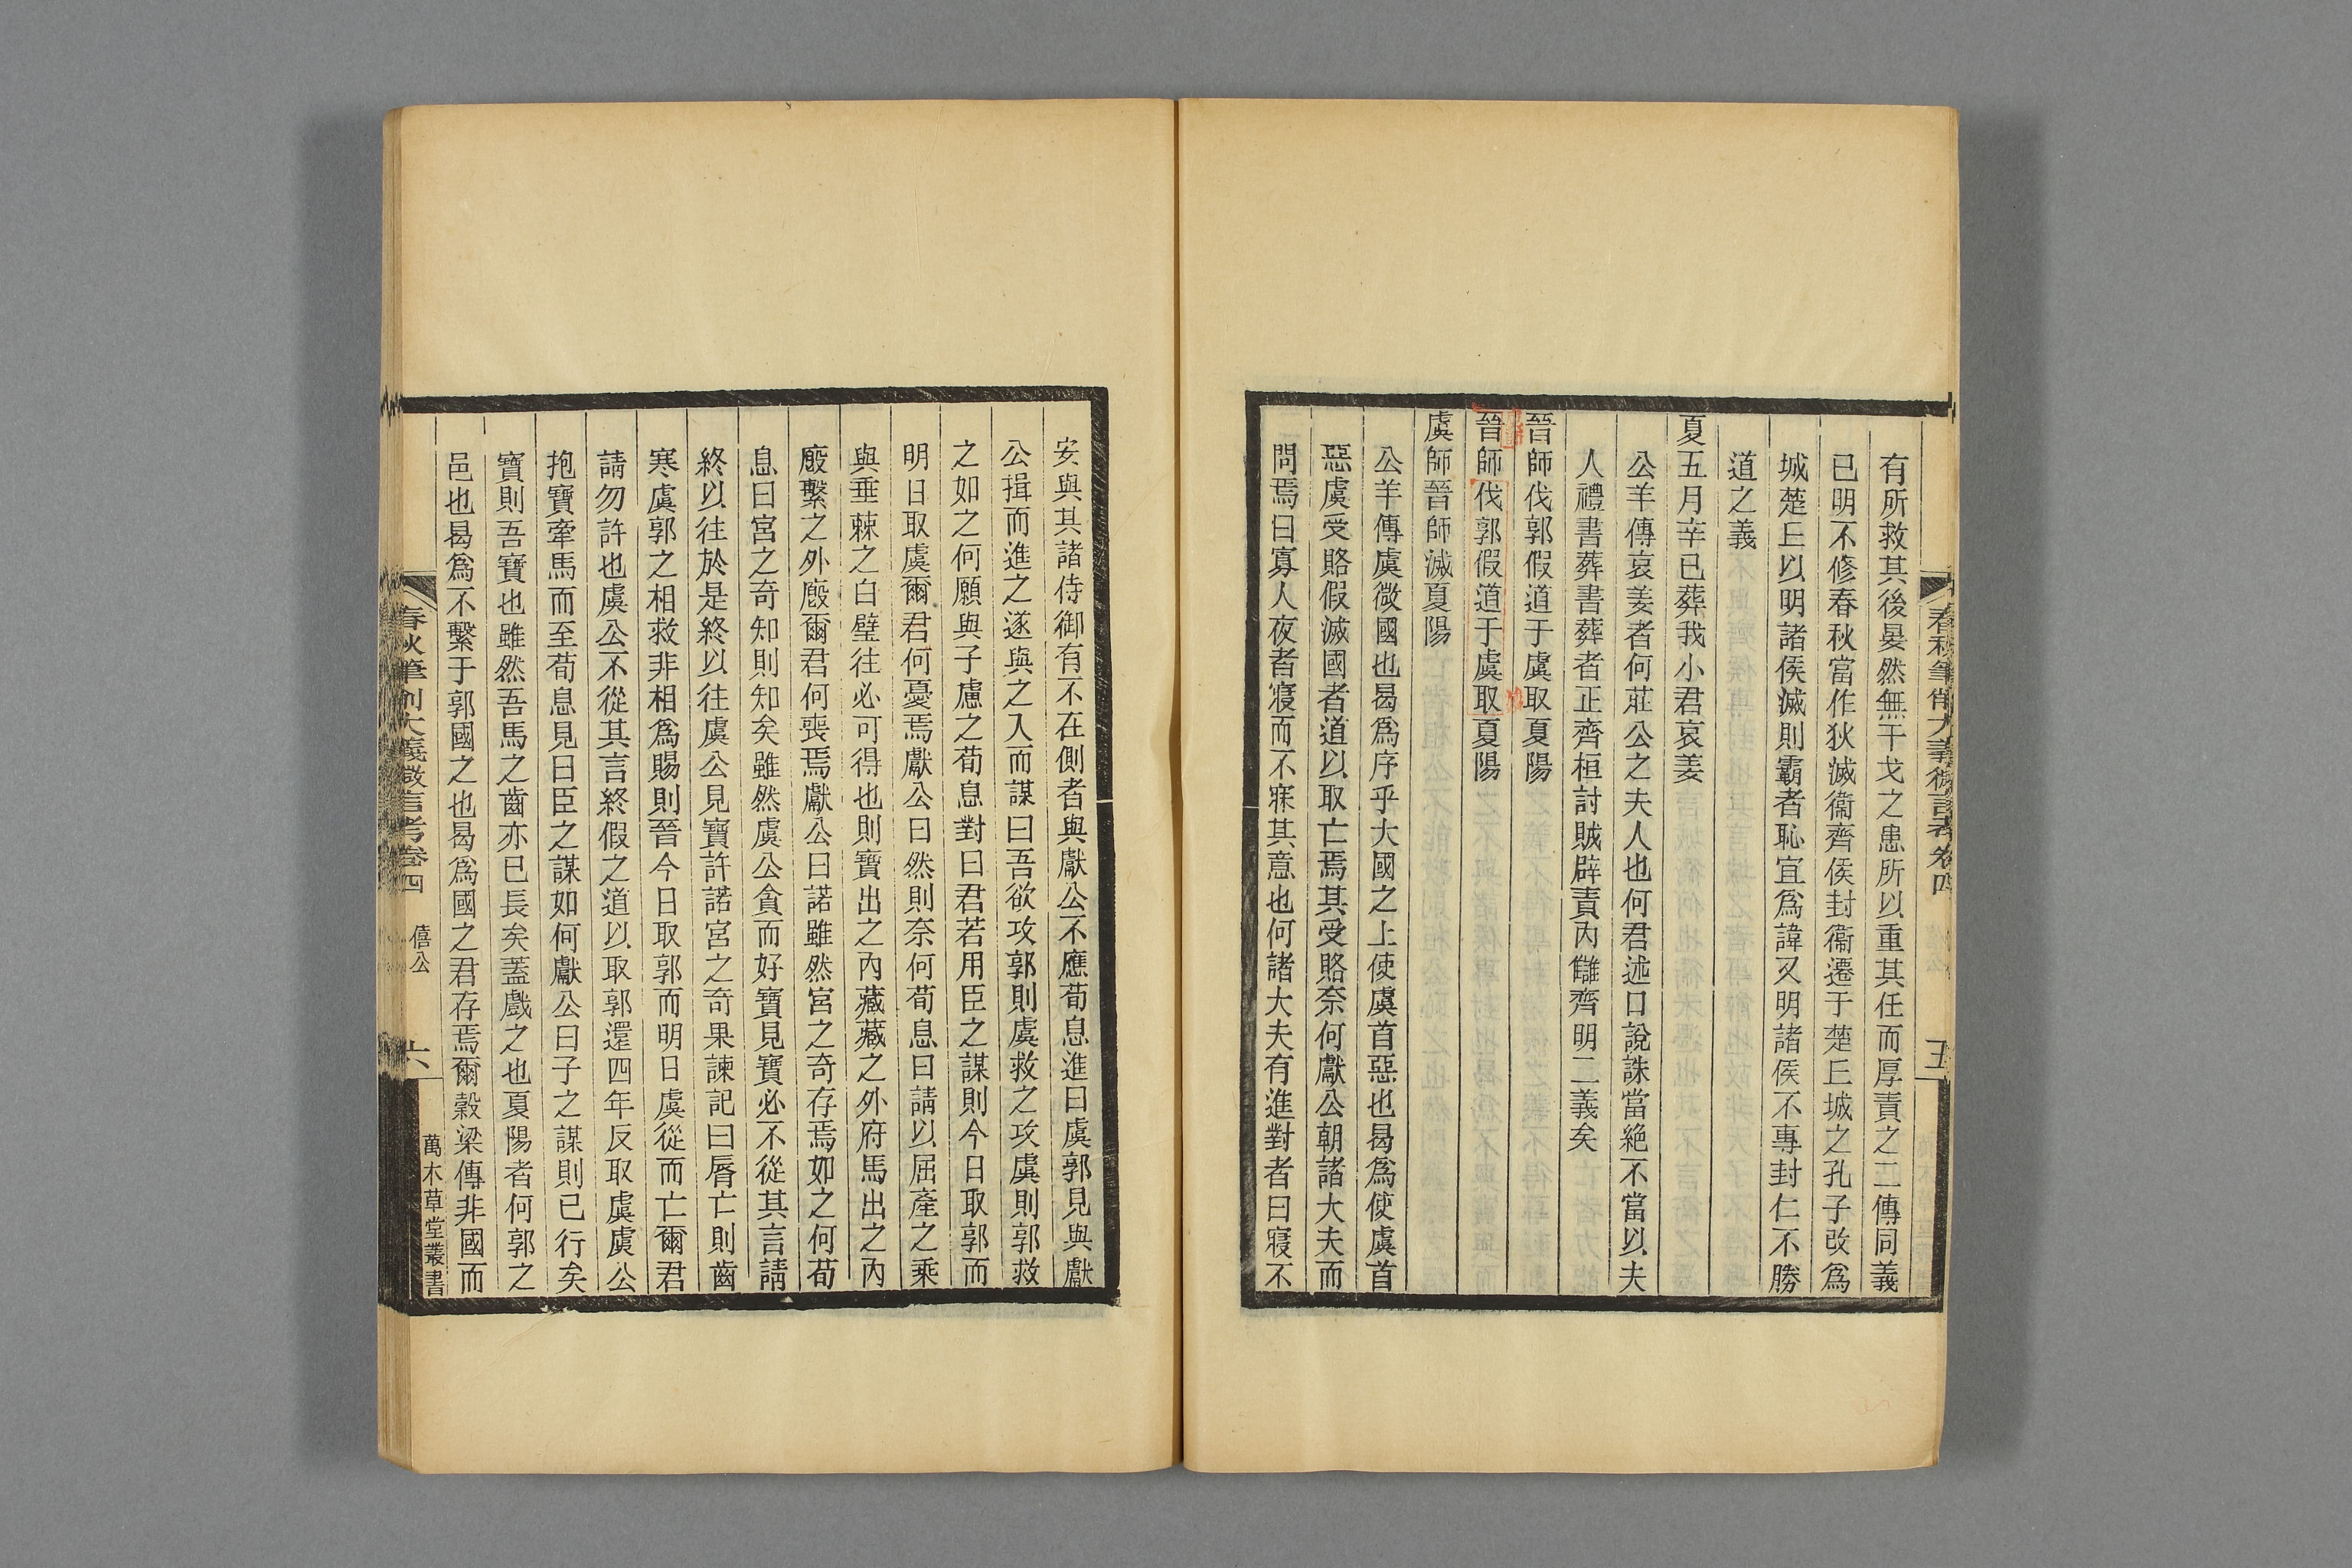 有所救其後晏然無干戈之患所以重其任而厚責之二傳同義
已明不修春秋當作狄滅衞齊侯封衞遷于楚丘城之孔子改爲
城楚丘以明諸侯滅則霸者恥宜爲諱又明諸侯不專封仁不勝
道之義
夏五月辛巳葬我小君哀姜
公羊傳哀姜者何莊公之夫人也何君述口說誅當絶不當以夫
人禮書葬書葬者正齊桓討賊辟責內讎齊明二義矣
晉師伐郭假道于虞取夏陽
晉師伐郭假道于虞取夏陽
虞師晉師滅夏陽
公羊傳虞微國也曷爲序乎大國之上使虞首惡也曷爲使虞首
惡虞受賂假滅國者道以取亡焉其受賂奈何獻公朝諸大夫而
問焉曰寡人夜者寢而不寐其意也何諸大夫有進對者曰寢不
春秋筆削大義微言考卷四
五
安與其諸侍御有不在側者與獻公不應荀息進曰虞郭見與獻
公揖而進之遂與之入而謀曰吾欲攻郭則虞救之攻虞則郭救
之如之何願與子慮之荀息對曰君若用臣之謀則今日取郭而
明日取虞爾君何憂焉獻公曰然則奈何荀息曰請以屈產之乘
與垂棘之白璧往必可得也則寶出之內藏藏之外府馬出之內
廄繫之外廄爾君何喪焉獻公曰諾雖然宮之奇存焉如之何荀
息曰宮之奇知則知矣雖然虞公貪而好寶見寶必不從其言請
終以往於是終以往虞公見寶許諾宮之奇果諫記曰脣亡則齒
寒虞郭之相救非相爲賜則晉今日取郭而明日虞從而亡爾君
請勿許也虞公不從其言終假之道以取郭還四年反取虞虞公
抱寶牽馬而至荀息見曰臣之謀如何獻公曰子之謀則已行矣
寶則吾寶也雖然吾馬之齒亦已長矣蓋戲之也夏陽者何郭之
邑也曷爲不繫于郭國之也曷爲國之君存焉爾穀梁傳非國而
春秋筆削大義微言考卷四
僖公
六
萬木草堂叢書